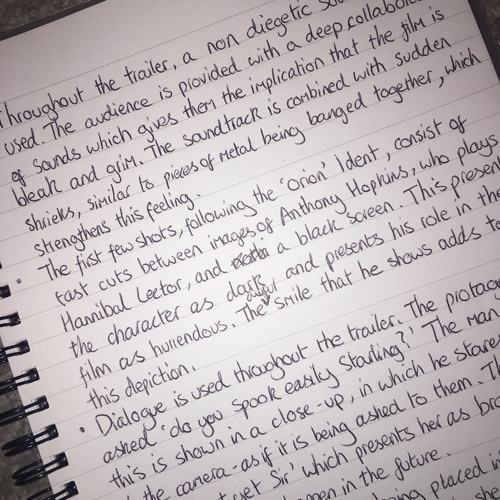 Throughout the trailer, a non diegetic
used. The audience is provided with a deep
of sounds which gives them the implication that the film is
bleak and grim. The soundtrack is combined with sudden
shrieks, similar to pieces of metal being banged together, which
strengthens this feeling.
• The first few shots, following the 'Orion' Ident, consist of
fast cuts between images of Anthony Hopkins, who plays
Hannibal Lector, and a black screen. This
the character as dark and presents his role in the
film as The smile that he shows adds to
this depiction.
• Dialogue is used throughout the trailer. The
asked 'do you spook easily Starling?' The man
this is shown in a close-up, in which he stares
the camera - as if it is being asked to them.
yet Sir' which presents her as
in the future.
placed